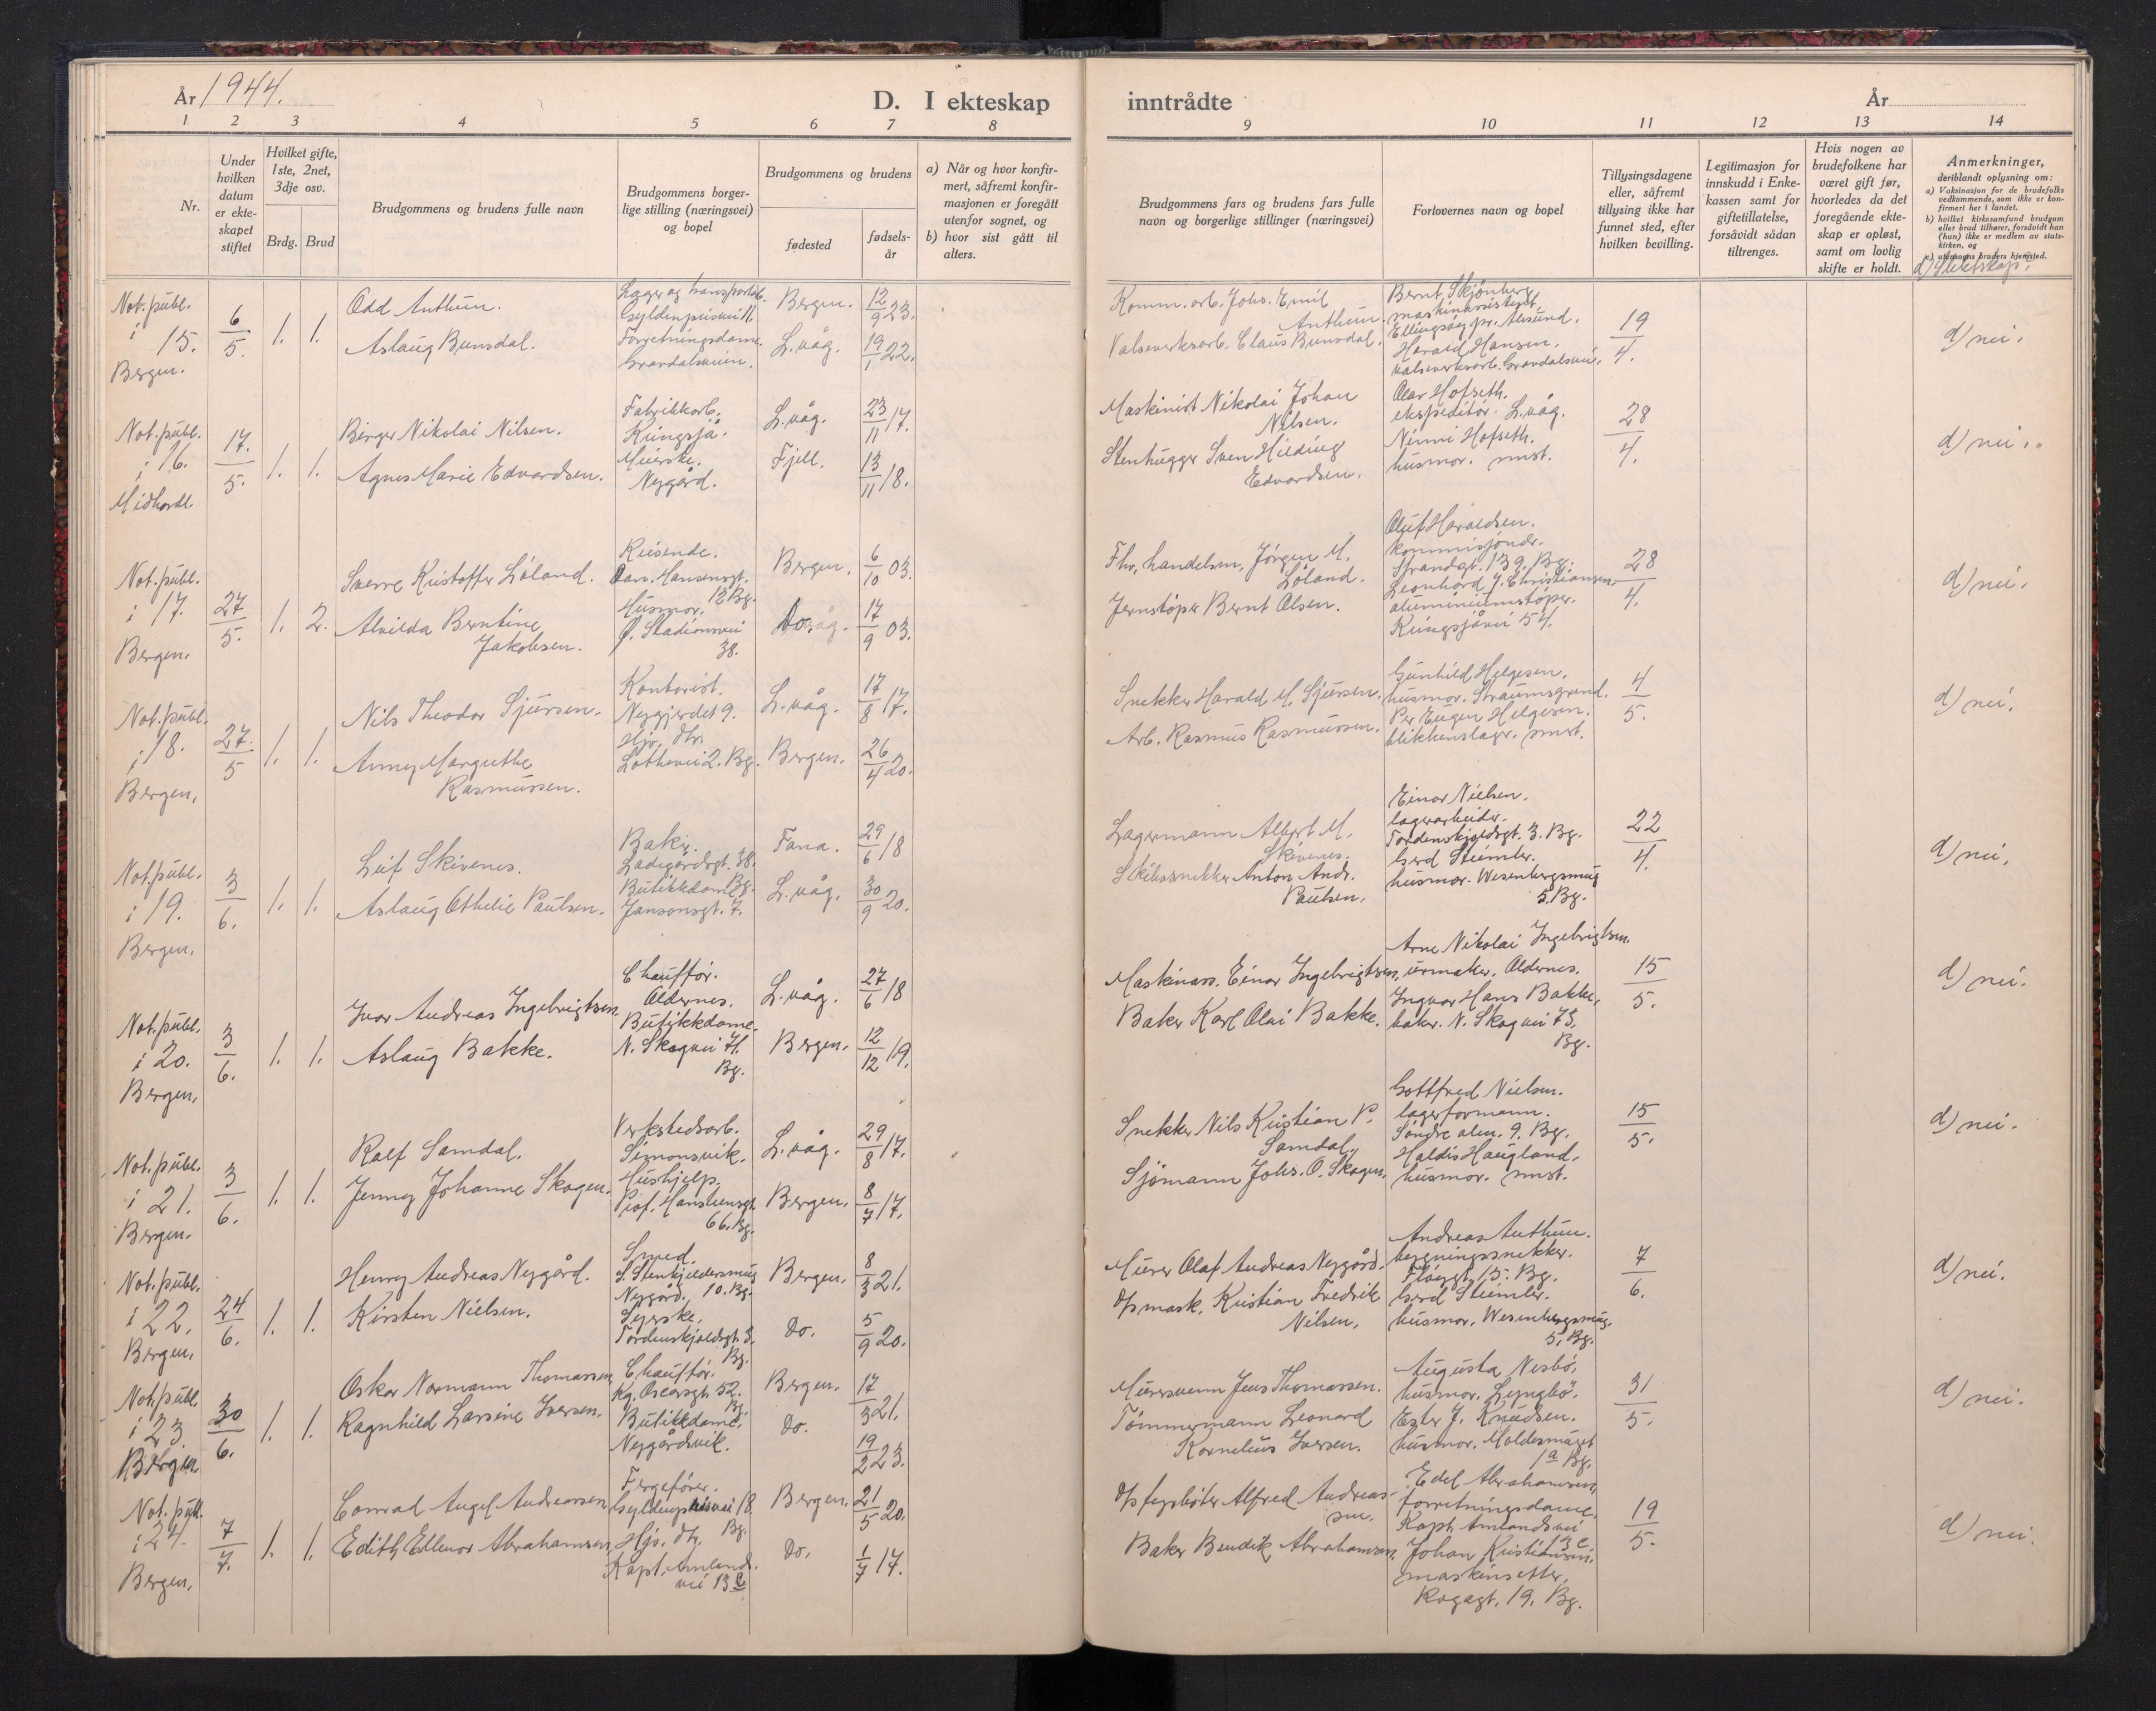 År 1944.
D. I ekteskap
inntrådte
År
1 2 3 4 5 6 7 8
9 10 11 12 13 14
Nr.
Under
hvilken
datum
er ekte-
skapet
stiftet
Hvilket gifte,
1ste, 2net,
3dje osv.
Brdg. Brud
Brudgommens og brudens fulle navn
Brudgommens borger-
lige stilling (næringsvei)
og bopel
Brudgommens og brudens
fødested
fødsels-
år
a) Når og hvor konfir-
mert, såfremt konfir-
masjonen er foregått
utenfor sognet, og
b) hvor sist gått til
alters.
Brudgommens fars og brudens fars fulle
navn og borgerlige stillinger (næringsvei)
Forlovernes navn og bopel
Tillysingsdagene
eller, såfremt
tillysing ikke har
funnet sted, efter
hvilken bevilling.
Legitimasjon for
innskudd i Enke-
kassen samt for
giftetillatelse,
forsåvidt sådan
tiltrenges.
Hvis nogen av
brudefolkene har
været gift før,
hvorledes da det
foregående ekte-
skap er opløst,
samt om lovlig
skifte er holdt.
Anmerkninger,
deriblandt oplysning om:
a) Vaksinasjon for de brudefolks
vedkommende, som ikke er kon-
firmert her i landet.
b) hvilket kirkesamfund brudgom
eller brud tilhører, forsåvidt han
(hun) ikke er medlem av stats-
kirken, og
c) utensogns bruders hjemsted.
d) Slektskap.
Not. publ.
i 15.
Bergen.
6/5.
1. 1.
Odd Anthun.
Aslaug Bunsdal.
Lager og transportarb.
Gyldenprisvei 11.
Forretningsdame.
Gravdalsveien.
Bergen. 12/9 23.
L.våg. 19/1 22.
Komm. arb. Johs. Emil
Anthun.
Valseverksarb. Claus Bunsdal.
Bernt Skjönberg,
maskinassistent.
Ellingsöy pr. Ålesund.
Harald Hansen.
valseverksarb. Gravdalsvei.
19/4.
d) nei.
Not. publ.
i 16.
Midhordl.
17./5.
1. 1.
Birger Nikolai Nilsen.
Agnes Marie Edvardsen.
Fabrikkarb.
Kringsjå.
Meierske.
Nygård.
L.våg. 23/11 17.
Fjell. 13/11 18.
Maskinist Nikolai Johan
Nilsen.
Stenhugger Sven Hilding
Edvardsen.
Olav Hofseth.
ekspeditör. L.våg.
Ninni Hofseth.
husmor. smst.
28/4.
d) nei.
Not. publ.
i 17.
Bergen.
27/5.
1. 2.
Sverre Kristoffer Löland.
Alvilda Berntine
Jakobsen.
Reisende.
Dan. Hansensgt.
12 Bg.
Husmor.
Ø. Stadionsvei
38.
Bergen. 6/10 03.
Do. 17/9 03.
Fhv. handelsm. Jörgen M.
Löland.
Jernstöper Bernt Olsen.
Oluf Haraldsen.
kommisjonær.
Strandgt. 139. Bg.
Leonhard J. Christiansen.
aluminiumstöper.
Kringsjåvei 54.
28/4.
d) nei.
Not. publ.
i 18.
Bergen.
27./5
1. 1.
Nils Theodor Sjursen.
Anny Margrethe
Rasmussen.
Kontorist.
Nygjerdet 9.
Hjv. dtr.
Lotheveien 2. Bg.
L.våg. 17/8 17.
Bergen. 26/4 20.
Snekker Harald M. Sjursen.
Arb. Rasmus Rasmussen.
Gunhild Helgesen.
husmor. Straumsgrund.
Per Eugen Helgesen.
blikkenslager. smst.
4/5.
d) nei.
Not. publ.
i 19.
Bergen.
3/6.
1. 1.
Leif Skivenes.
Aslaug Othelie Paulsen.
Baker.
Ladegårdsgt. 38.
Bg.
Butikkdame.
Jansonsgt. 7.
Fana. 29/6 18
L.våg. 30/9 20.
Lagermann Albert M.
Skivenes.
Skibssnekker Anton Andr.
Paulsen.
Einar Nielsen.
lagerarbeider.
Tordenskjoldsgt. 3. Bg.
Gerd Steimler.
husmor. Wesenbergsmug
5. Bg.
22/4.
d) nei.
Not. publ.
i 20.
Bergen.
3/6.
1. 1.
Ivar Andreas Ingebrigtsen.
Aslaug Bakke.
Chauffør.
Oldernes.
Butikkdame.
N. Skogvei 71.
Bg.
L.våg. 27/6 18
Bergen. 12/12 19.
Maskinass. Einar Ingebrigtsen.
Baker Karl Olai Bakke.
Arne Nikolai Ingebrigtsen.
urmaker. Oldernes.
Ingvar Hans Bakke.
baker. N. Skogvei 73.
Bg.
15/5.
d) nei.
Not. publ.
i 21.
Bergen.
3/6.
1. 1.
Ralf Samdal.
Jenny Johanne Skagen.
Verkstedsarb.
Simonsvik.
Hushjelp.
Prof. Hansteensgt.
66. Bg.
L.våg. 29/8 17.
Bergen. 8/7 17.
Snekker Nils Kristian P.
Samdal.
Sjömann Johs. O. Skagen.
Gottfred Nielsen.
lagerformann.
Söndre alm. 9. Bg.
Haldis Haugland.
husmor. smst.
15/5.
d) nei.
Not. publ.
i 22.
Bergen.
24/6.
1. 1.
Henry Andreas Nygård.
Kirsten Nielsen.
Smed.
S. Stenkjeldersmug
Nygård. 10. Bg.
Syerske.
Tordenskjoldsgt. 3.
Bg.
Bergen. 8/3 21.
Do. 5/9 20.
Murer Olaf Andreas Nygård.
D/s mask. Kristian Fredrik
Nilsen.
Andreas Anthun.
bygningssnekker.
Fløygt. 15. Bg.
Gerd Steimler.
husmor. Wesenbergsmug.
5. Bg.
7/6.
d) nei.
Not. publ.
i 23
Bergen
30/6.
1. 1.
Oskar Normann Thomassen
Ragnhild Larsine Iversen.
Chauffør.
Kg. Oscarsgt. 52.
Bg.
Butikkdame.
Nygårdsvik.
Bergen. 17/3 21.
Do. 19/2 23.
Murersvenn Jens Thomassen.
Tömmermann Leonard
Kornelius Iversen.
Augusta Nesbö.
husmor. Lyngbö.
Ester J. Knudsen.
husmor. Moldesmuget
1a Bg.
31/5.
d) nei.
Not. publ.
i 24.
Bergen.
7/7.
1. 1.
Conrad Angel Andreassen
Edith Ellenor Abrahamsen
Fergefører.
Gyldenprisvei 18.
Bg.
Hjv. dtr.
Kapt. Amlands.
vei 13 c
Bergen. 21/5 20.
Do. 1/7 17.
D/s fyrbøter Alfred Andreas-
sen.
Baker Bendik Abrahamsen.
Edel Abrahamsen
forretningsdame.
Kapt. Amlandsvei
13 c.
Johan Kristiansen.
maskinsetter.
Rogagt. 19. Bg.
19/5.
d) nei.